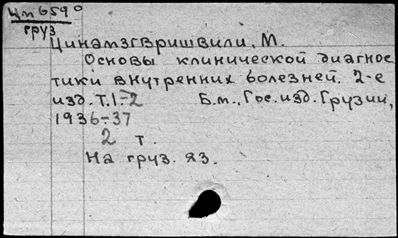 Цп 659°
груз
Цинамзгвришвили, М.
Основы клинической диагнос
тики внутренних болезней. 2-е
изд. Т.1.-2 Б.м., Гос. изд. Грузии,
1936-37
2 т.
На груз. яз.